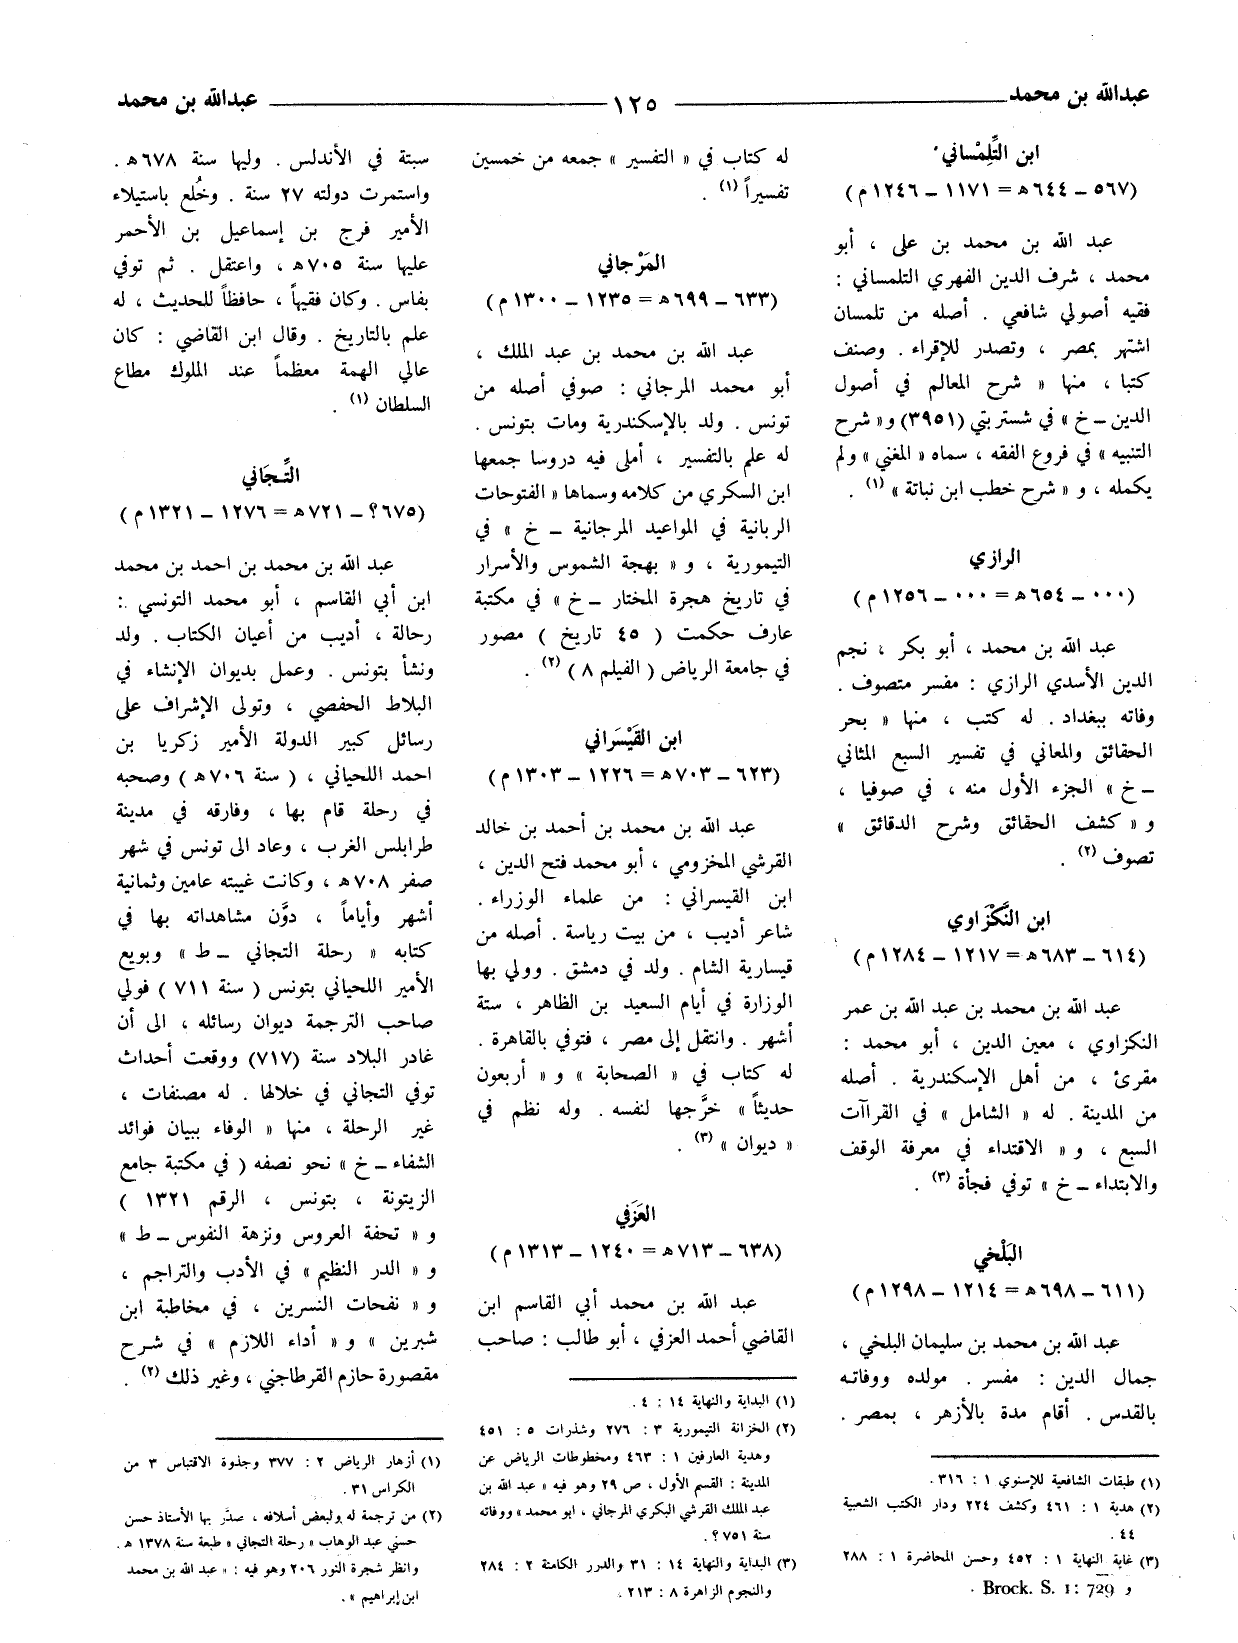 عبدالله بن محمد
١٢٥
عبدالله بن محمد
ابن التِّلِمْساني
(٥٦٧ ــ ٦٤٤ هـ = ١١٧١ ــ ١٢٤٦ م)
عبد الله بن محمد بن علي ، أبو
محمد ، شرف الدين الفهري التلمساني :
فقيه أصولي شافعي . أصله من تلمسان
اشتهر بمصر ، وتصدر للإقراء . وصنف
كتبا ، منها « شرح المعالم في أصول
الدين ــ خ » في شستربتي (٣٩٥١) و« شرح
التنبيه » في فروع الفقه ، سماه « المغني » ولم
يكمله ، و « شرح خطب ابن نباتة » (١) .
الرازي
(٠٠٠ ــ ٦٥٤ هـ = ٠٠٠ ــ ١٢٥٦ م)
عبد الله بن محمد ، أبو بكر ، نجم
الدين الأسدي الرازي : مفسر متصوف .
وفاته ببغداد . له كتب ، منها « بحر
الحقائق والمعاني في تفسير السبع المثاني
ــ خ » الجزء الأول منه ، في صوفيا ،
و « كشف الحقائق وشرح الدقائق »
تصوف (٢) .
ابن النَّكْزَاوي
(٦١٤ ــ ٦٨٣ هـ = ١٢١٧ ــ ١٢٨٤ م)
عبد الله بن محمد بن عبد الله بن عمر
النكزاوي ، معين الدين ، أبو محمد :
مقرئ ، من أهل الإسكندرية . أصله
من المدينة . له « الشامل » في القراآت
السبع ، و « الاقتداء في معرفة الوقف
والابتداء ــ خ » توفي فجأة (٣) .
البَلْخي
(٦١١ ــ ٦٩٨ هـ = ١٢١٤ ــ ١٢٩٨ م)
عبد الله بن محمد بن سليمان البلخي ،
جمال الدين : مفسر . مولده ووفاته
بالقدس . أقام مدة بالأزهر ، بمصر .
(١) طبقات الشافعية للإسنوي ١ : ٣١٦ .
(٢) هدية ١ : ٤٦١ وكشف ٢٢٤ ودار الكتب الشعبية
٤٤ .
(٣) غاية النهاية ١ : ٤٥٢ وحسن المحاضرة ١ : ٢٨٨
و Brock. S. 1: 729 .
له كتاب في « التفسير » جمعه من خمسين
تفسيراً (١) .
المَرْجاني
(٦٣٣ ــ ٦٩٩ هـ = ١٢٣٥ ــ ١٣٠٠ م)
عبد الله بن محمد بن عبد الملك ،
أبو محمد المرجاني : صوفي أصله من
تونس . ولد بالإسكندرية ومات بتونس .
له علم بالتفسير ، أملى فيه دروسا جمعها
ابن السكري من كلامه وسماها « الفتوحات
الربانية في المواعيد المرجانية ــ خ » في
التيمورية ، و « بهجة الشموس والأسرار
في تاريخ هجرة المختار ــ خ » في مكتبة
عارف حكمت ( ٤٥ تاريخ ) مصور
في جامعة الرياض ( الفيلم ٨ ) (٢) .
ابن القَيْسَراني
(٦٢٣ ــ ٧٠٣ هـ = ١٢٢٦ ــ ١٣٠٣ م)
عبد الله بن محمد بن أحمد بن خالد
القرشي المخزومي ، أبو محمد فتح الدين ،
ابن القيسراني : من علماء الوزراء .
شاعر أديب ، من بيت رياسة . أصله من
قيسارية الشام . ولد في دمشق . وولي بها
الوزارة في أيام السعيد بن الظاهر ، ستة
أشهر . وانتقل إلى مصر ، فتوفي بالقاهرة .
له كتاب في « الصحابة » و « أربعون
حديثاً » خرَّجها لنفسه . وله نظم في
« ديوان » (٣) .
العَزَفي
(٦٣٨ ــ ٧١٣ هـ = ١٢٤٠ ــ ١٣١٣ م)
عبد الله بن محمد أبي القاسم ابن
القاضي أحمد العزفي ، أبو طالب : صاحب
(١) البداية والنهاية ١٤ : ٤ .
(٢) الخزانة التيمورية ٣ : ٢٧٦ وشذرات ٥ : ٤٥١
وهدية العارفين ١ : ٤٦٣ ومخطوطات الرياض عن
المدينة : القسم الأول ، ص ٢٩ وهو فيه « عبد الله بن
عبد الملك القرشي البكري المرجاني ، ابو محمد » ووفاته
سنة ٧٥١ ؟ .
(٣) البداية والنهاية ١٤ : ٣١ والدرر الكامنة ٢ : ٢٨٤
والنجوم الزاهرة ٨ : ٢١٣ .
سبتة في الأندلس . وليها سنة ٦٧٨ هـ .
واستمرت دولته ٢٧ سنة . وخُلع باستيلاء
الأمير فرج بن إسماعيل بن الأحمر
عليها سنة ٧٠٥ هـ ، واعتقل . ثم توفي
بفاس . وكان فقيهاً ، حافظاً للحديث ، له
علم بالتاريخ . وقال ابن القاضي : كان
عالي الهمة معظماً عند الملوك مطاع
السلطان (١) .
التِّجَاني
(٦٧٥؟ ــ ٧٢١ هـ = ١٢٧٦ ــ ١٣٢١ م)
عبد الله بن محمد بن احمد بن محمد
ابن أبي القاسم ، أبو محمد التونسي :
رحالة ، أديب من أعيان الكتاب . ولد
ونشأ بتونس . وعمل بديوان الإنشاء في
البلاط الحفصي ، وتولى الإشراف على
رسائل كبير الدولة الأمير زكريا بن
احمد اللحياني ، ( سنة ٧٠٦ هـ ) وصحبه
في رحلة قام بها ، وفارقه في مدينة
طرابلس الغرب ، وعاد الى تونس في شهر
صفر ٧٠٨ هـ ، وكانت غيبته عامين وثمانية
أشهر وأياماً ، دوَّن مشاهداته بها في
كتابه « رحلة التجاني ــ ط » وبويع
الأمير اللحياني بتونس ( سنة ٧١١ ) فولي
صاحب الترجمة ديوان رسائله ، الى أن
غادر البلاد سنة (٧١٧) ووقعت أحداث
توفي التجاني في خلالها . له مصنفات ،
غير الرحلة ، منها « الوفاء ببيان فوائد
الشفاء ــ خ » نحو نصفه ( في مكتبة جامع
الزيتونة ، بتونس ، الرقم ١٣٢١ )
و « تحفة العروس ونزهة النفوس ــ ط »
و « الدر النظيم » في الأدب والتراجم ،
و « نفحات النسرين ، في مخاطبة ابن
شبرين » و « أداء اللازم » في شرح
مقصورة حازم القرطاجني ، وغير ذلك (٢) .
(١) أزهار الرياض ٢ : ٣٧٧ وجذوة الاقتباس ٣ من
الكراس ٣١ .
(٢) من ترجمة له ولبعض أسلافه ، صدَّر بها الأستاذ حسن
حسني عبد الوهاب « رحلة التجاني » طبعة سنة ١٣٧٨ هـ .
وانظر شجرة النور ٢٠٦ وهو فيه : « عبد الله بن محمد
ابن إبراهيم » .